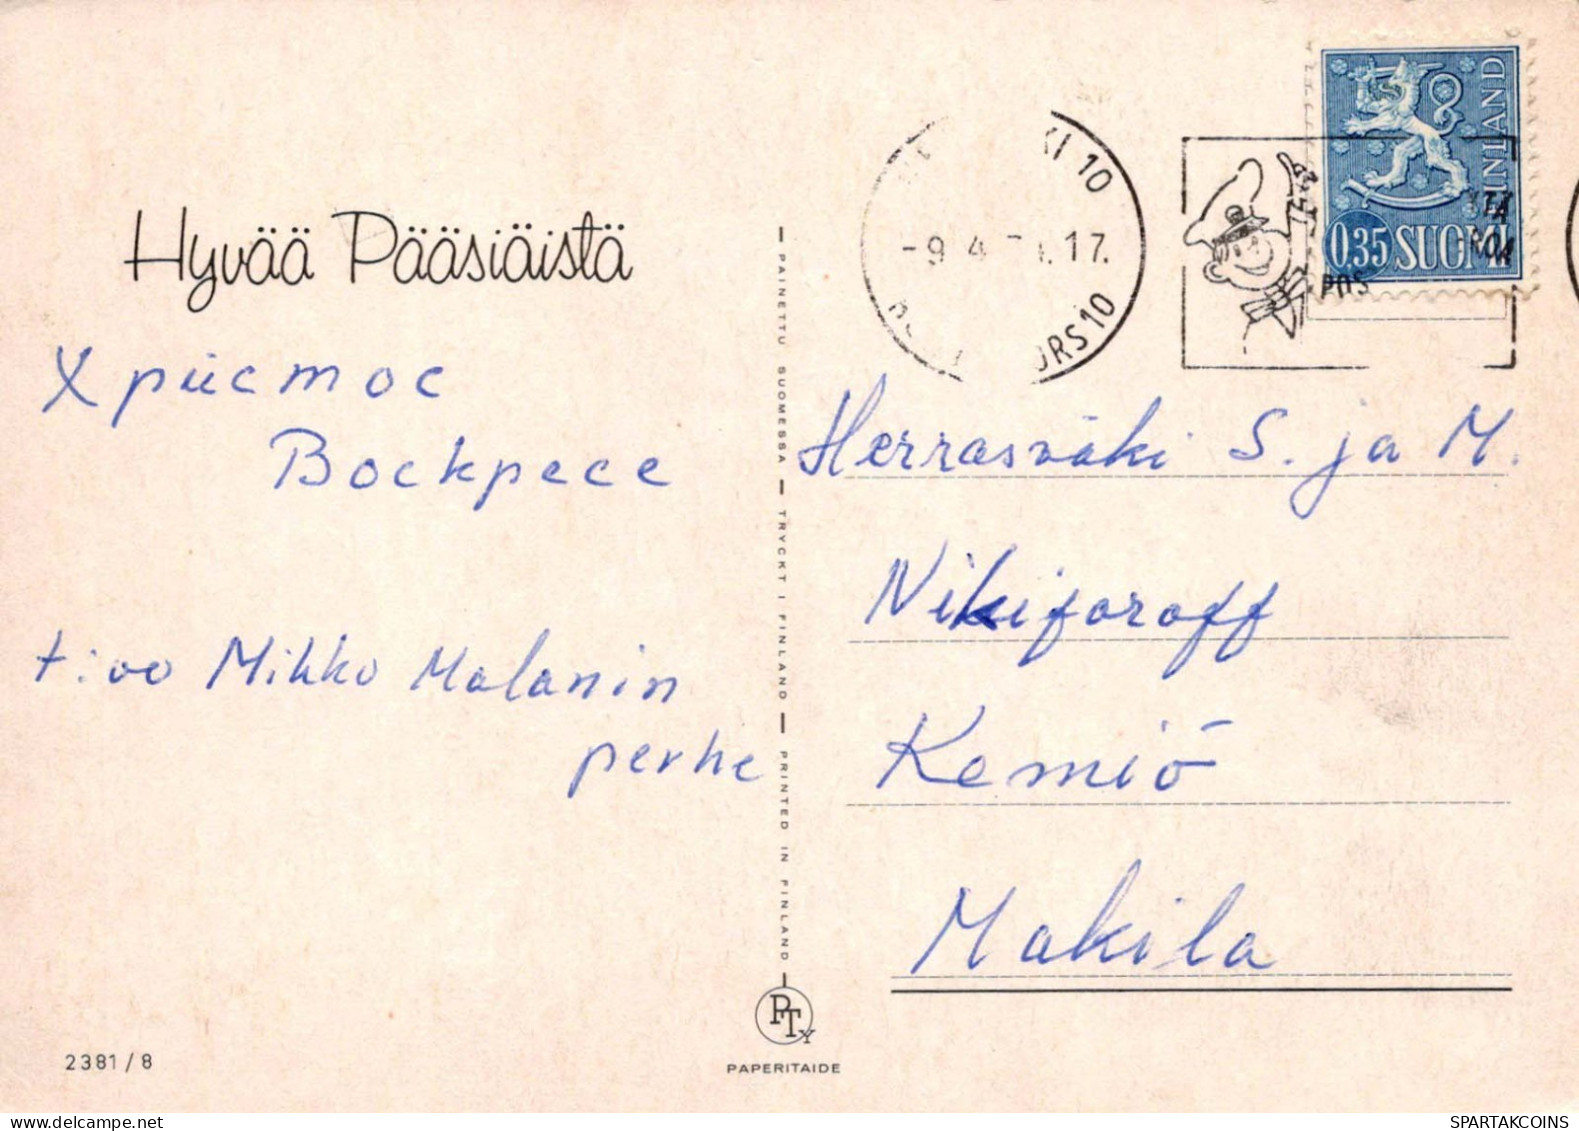 Hyvää Pääsiäistä
Христос
Воскресе
t:oo Mikko Malanin
perhe
2381/8
PAINETTU SUOMESSA — TRYCKT I FINLAND — PRINTED IN FINLAND
PTy
PAPERITAIDE
KI 10
-9 4 17.
ORS 10
POS
FINLAND
0,35 SUOMI
Herrasväki S. ja M.
Nikiforoff
Kemiö
Makila
SPARTAKCOINS